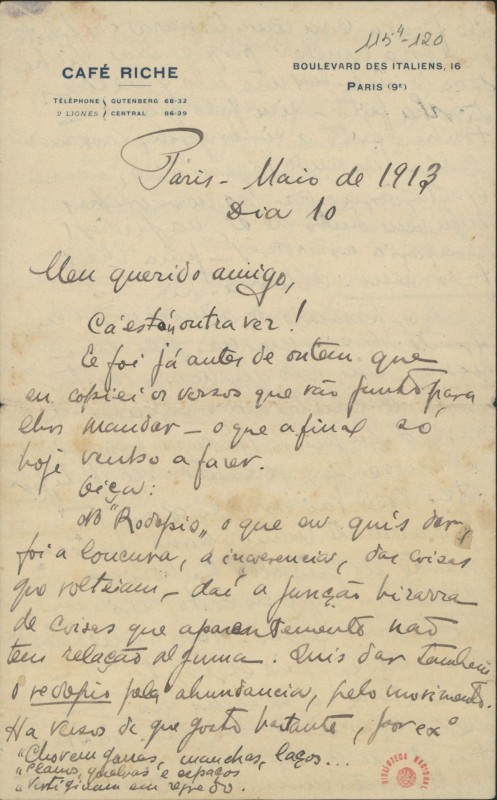 115⁴-120
CAFÉ RICHE
BOULEVARD DES ITALIENS, 16
PARIS (9ᵉ)
TÉLÉPHONE GUTENBERG 68-32
2 LIGNES CENTRAL 86-39
Paris - Maio de 1913
Dia 10
Meu querido amigo,
Cá estou outra vez!
E foi já antes de ontem que
eu copiei os versos que vão junto para
lhos mandar — o que afinal só
hoje venho a fazer.
Oiça:
No "Rodopio" o que eu quis dar,
foi a loucura, a incoerencia, das coisas
que volteiam — daí a junção bizarra
de coisas que aparentemente não
tem relação alguma. Quis dar tambem
o rodopio pela abundancia, pelo movimento.
Ha versos de que gosto bastante, por exº
"Chovem garras, manchas, laços...
"Planos, quebras e espaços
"Vertiginam em segredo.
BIBLIOTECA NACIONAL